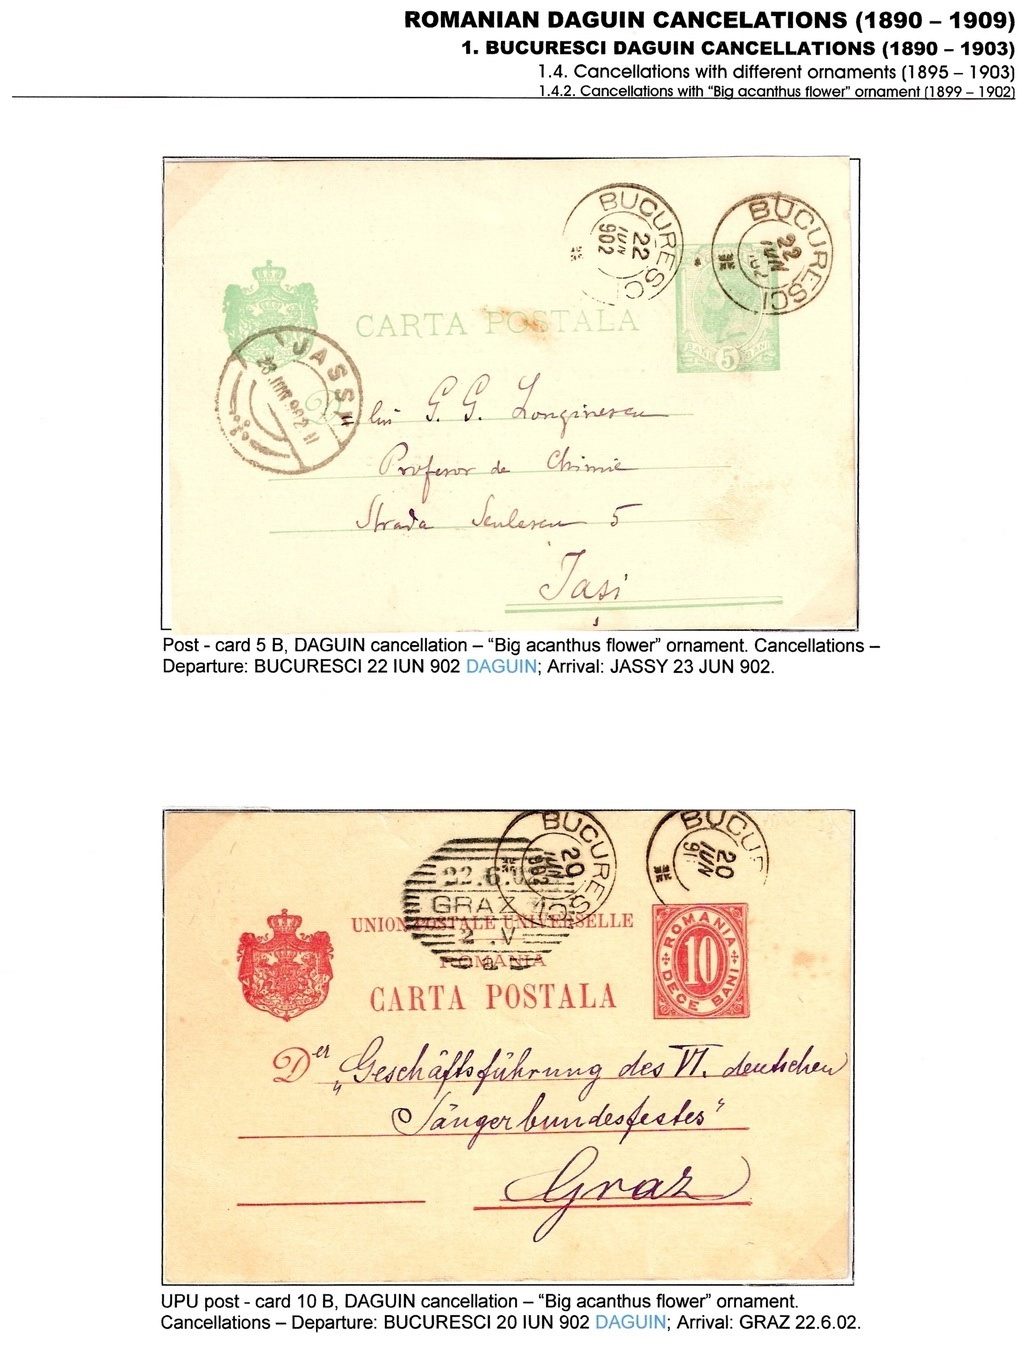 ROMANIAN DAGUIN CANCELATIONS (1890 – 1909)
1. BUCURESCI DAGUIN CANCELLATIONS (1890 – 1903)
1.4. Cancellations with different ornaments (1895 – 1903)
1.4.2. Cancellations with “Big acanthus flower” ornament (1899 – 1902)
BUCURESCI
22
IUN
902
BUCURESCI
22
IUN
CARTA POSTALA
5
JASSY
23 JUN 902 11
D lui G. G. Longinescu
Profesor de Chimie
Strada Sculescu 5
Iasi
Post - card 5 B, DAGUIN cancellation – “Big acanthus flower” ornament. Cancellations –
Departure: BUCURESCI 22 IUN 902 DAGUIN; Arrival: JASSY 23 JUN 902.
BUCURESCI
20
IUN
902
BUCU
20
IUN
22.6.0
GRAZ
2 .V
UNION POSTALE UNIVERSELLE
ROMANIA
CARTA POSTALA
ROMANIA
10
DECE BANI
Der „Geschäftsführung des VI. deutschen
Sängerbundesfestes“
Graz
UPU post - card 10 B, DAGUIN cancellation – “Big acanthus flower” ornament.
Cancellations – Departure: BUCURESCI 20 IUN 902 DAGUIN; Arrival: GRAZ 22.6.02.